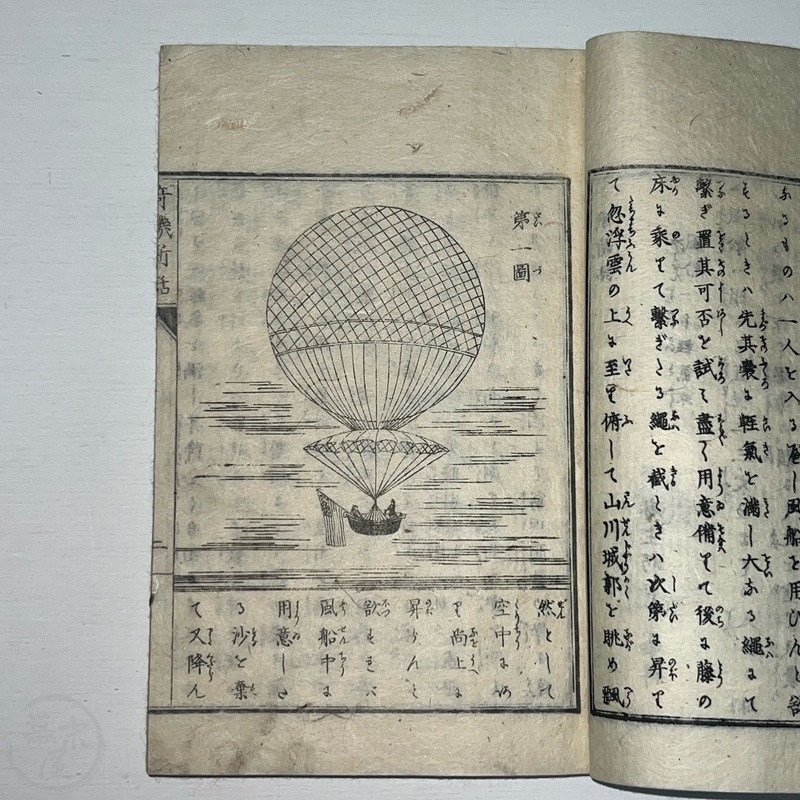 なるものハ一人を入る可し風船を用ひんと欲
するときハ先其嚢に軽氣を満し大なる縄にて
繋ぎ置其可否を試て盡く用意備りて後に藤の
床に乗りて繋ぎたる縄を截ときハ次第に昇り
て忽浮雲の上に至り俯して山川城郭を眺め飄
第一圖
然として
空中にあ
り尚上に
昇らんと
欲ときハ
風船中に
用意した
る沙を棄
て又降ん
奇機新話
二